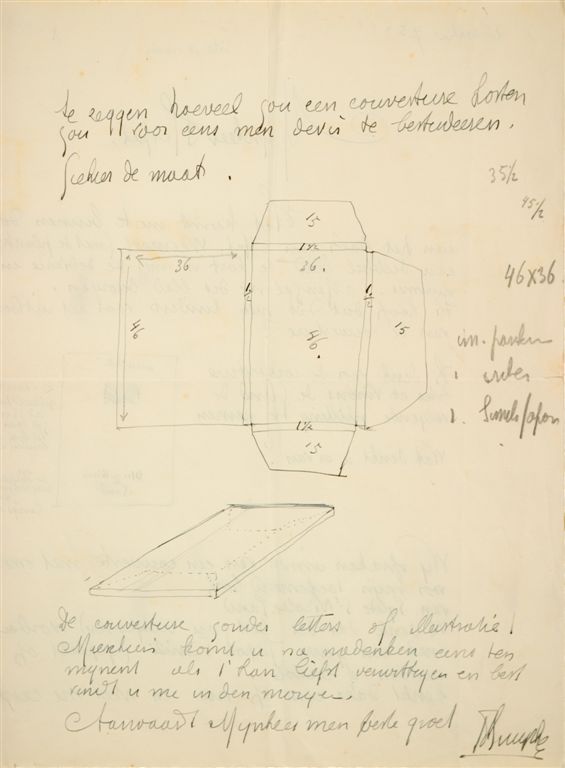 te zeggen hoeveel zou een couverture kosten
zou voor eens men devis te bestudeeren.
Ziehier de maat.
35 1/2
45 1/2
15
1 1/2
36
36.
1/2
1/2
46 x 36.
46
46
15
1 1/2
15
De couverture zonder letters of illustratie!
Misschien komt u na nadenken eens ten
mynent als 't kan liefst verwittigen en best
vindt u me in den morgen.
Aanvaardt Mynheer men beste groet